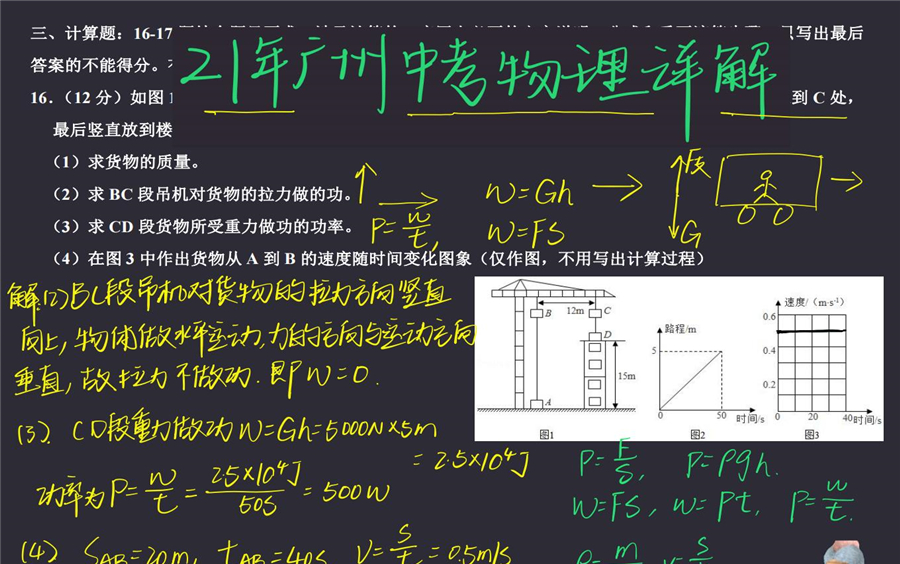 三、计算题：16-17
写出最后
21年广州中考物理详解
答案的不能得分。
16.（12 分）如图 1
到 C 处，
最后竖直放到楼
（1）求货物的质量。
（2）求 BC 段吊机对货物的拉力做的功。
W=Gh
F支
G
（3）求 CD 段货物所受重力做功的功率。
P=W/t,
W=FS
（4）在图 3 中作出货物从 A 到 B 的速度随时间变化图象（仅作图，不用写出计算过程）
解:(2)BC段吊机对货物的拉力方向竖直
向上,物体做水平运动,力的方向与运动方向
垂直,故拉力不做功.即W=0.
B
12m
C
D
15m
A
图1
路程/m
5
0
50
时间/s
图2
速度/（m·s⁻¹）
0.6
0.4
0.2
0
20
40
时间/s
图3
(3). CD段重力做功W=Gh=5000N×5m
=2.5×10⁴J
功率为P=W/t=2.5×10⁴J/50s=500W
P=F/S, P=ρgh.
W=FS, W=Pt, P=W/t.
(4) SAB=20m, tAB=40s, V=S/t=0.5m/s